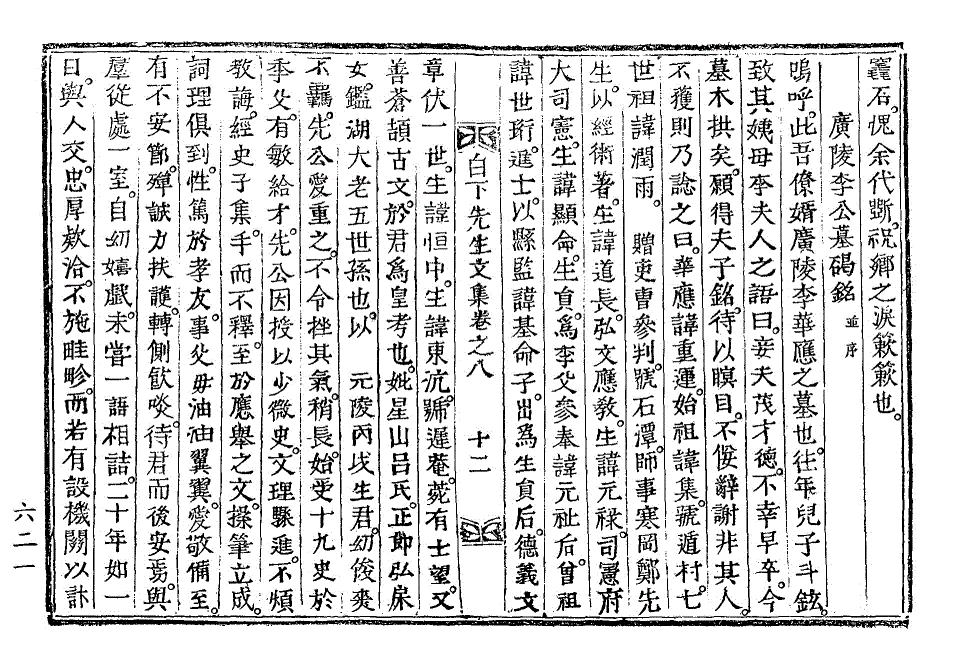 竁石。愧余代斲。祝鄕之淚簌簌也。
廣陵李公墓碣銘 並序
嗚呼。此吾僚婿廣陵李華應之墓也。往年兒子斗鉉。
致其姨母李夫人之語曰。妾夫茂才德。不幸早卒。今
墓木拱矣。願得夫子銘。待以瞑目。不佞辭謝非其人。
不獲則乃諗之曰。華應諱重運。始祖諱集。號遁村。七
世祖諱潤雨。 贈吏曹參判。號石潭。師事寒岡鄭先
生。以經術著。生諱道長。弘文應敎。生諱元祿。司憲府
大司憲。生諱顯命。生員。爲李父參奉諱元祉后。曾祖
諱世珩。進士。以縣監諱基命子出。爲生員后。德義文
白下先生文集卷之八 十二
章伏一世。生諱恒中。生諱東沆。號遲菴。菀有士望。又
善蒼頡古文。於君爲皇考也。妣星山呂氏。正郞弘扆
女。鑑湖大老五世孫也。以 元陵丙戌生君。幼俊爽
不羈。先公愛重之。不令挫其氣。稍長。始受十九史於
季父。有敏給才。先公因授以少微史。文理驟進。不煩
敎誨。經史子集。手而不釋。至於應擧之文。操筆立成。
詞理俱到。性篤於孝友。事父毋油油翼翼。愛敬備至。
有不安節。殫誠力扶護。轉側飮啖。待君而後安焉。與
羣從處一室。自幼嬉戱。未嘗一語相詰。二十年如一
日。與人交。忠厚欵洽。不施畦畛。而若有設機關以訃
六二一